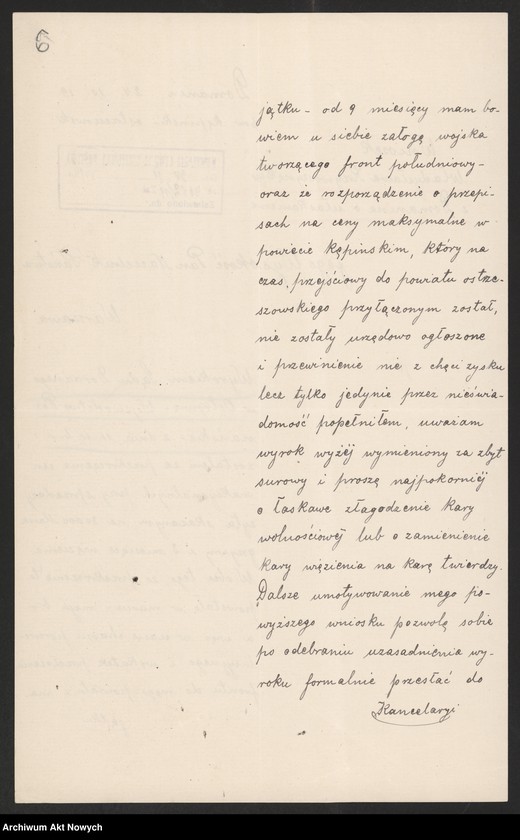 6
jątku - od 9 miesięcy mam bo-
wiem u siebie załogę wojska
tworzącego front południowy -
oraz że rozporządzenie o przepi-
sach na ceny maksymalne w
powiecie kępinskim, który na
czas przejściowy do powiatu ostrze-
szowskiego przyłączonym został,
nie zostały urzędowo ogłoszone
i przewinienie nie z chęci zysku
lecz tylko jedynie przez nieświa-
domość popełniłem, uważam
wyrok wyżej wymieniony za zbyt
surowy i proszę najpokorniej
o łaskawe złagodzenie kary
wolnościowej lub o zamienienie
kary więzienia na karę twierdzy.
Dalsze umotywowanie mego po-
wyższego wniosku pozwolę sobie
po odebraniu uzasadnienia wy-
roku formalnie przesłać do
Kancelaryi
Archiwum Akt Nowych